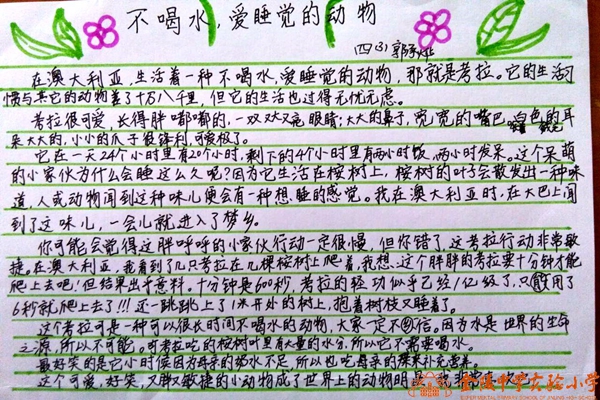 不喝水,爱睡觉的动物
四(3) 郭
在澳大利亚,生活着一种不喝水,爱睡觉的动物,那就是考拉。它的生活习
惯与其它的动物差了十万八千里,但它的生活也过得无忧无虑。
考拉很可爱,长得胖嘟嘟的,一双又大又亮眼睛;大大的鼻子,宽宽的嘴巴,白色的耳
朵大大的,小小的爪子很锋利,可爱极了。
它在一天24个小时里有20个小时,剩下的4个小时里有两小时饭,两小时发呆。这个呆萌
的小家伙为什么会睡这么久呢?因为它生活在桉树上,桉树的叶子会散发出一种味
道,人或动物闻到这种味儿便会有一种想睡的感觉。我在澳大利亚时,在大巴上闻
到了这味儿,一会儿就进入了梦乡。
你可能会觉得这胖呼呼的小家伙行动一定很慢,但你错了,这考拉行动非常敏
捷。在澳大利亚,我看到了几只考拉在几棵桉树上爬着,我想,这个胖胖的考拉要十分钟才能
爬上去吧!但结果出乎意料,十分钟是600秒,考拉的轻功似乎已经1亿级了,只用了
6秒就爬上去了!!!还一跳跳上了1米开外的树上,抱着树枝又睡着了。
这个考拉可是一种可以很长时间不喝水的动物,大家一定不信。因为水是世界的生命
之源,所以不可能。可考拉吃的桉树叶里有大量的水分,所以它不需要喝水。
最好笑的是它小时侯因为母亲的奶水不足,所以也吃母亲的粪来补充营养。
这个可爱,好笑,又胖又敏捷的小动物成了世界上的动物明星
金陵中学实验小学